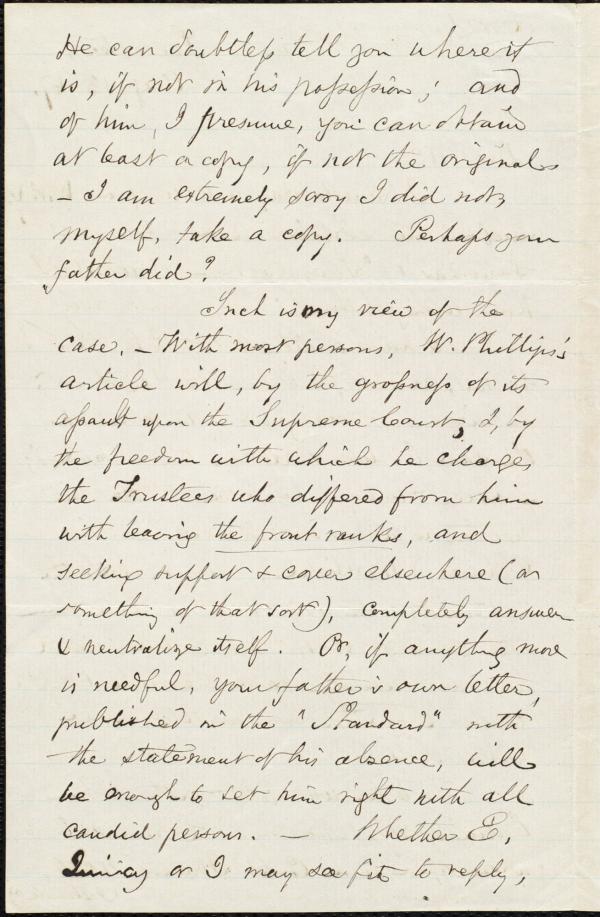 He can doubtless tell you where it
is, if not in his possession; and
of him, I presume, you can obtain
at least a copy, if not the original.
- I am extremely sorry I did not,
myself, take a copy. Perhaps your
father did?
Such is my view of the
case. - With most persons, W. Phillips's
article will, by the grossness of its
assault upon the Supreme Court, &, by
the freedom with which he charges
the Trustees who differed from him
with leaving the front ranks, and
seeking support & cover elsewhere (or
something of that sort), completely answer
& neutralize itself. Or, if anything more
is needful, your father's own letter,
published in the "Standard" with
the statement of his absence, will
be enough to set him right with all
candid persons. - Whether E.
Quincy or I may see fit to reply,